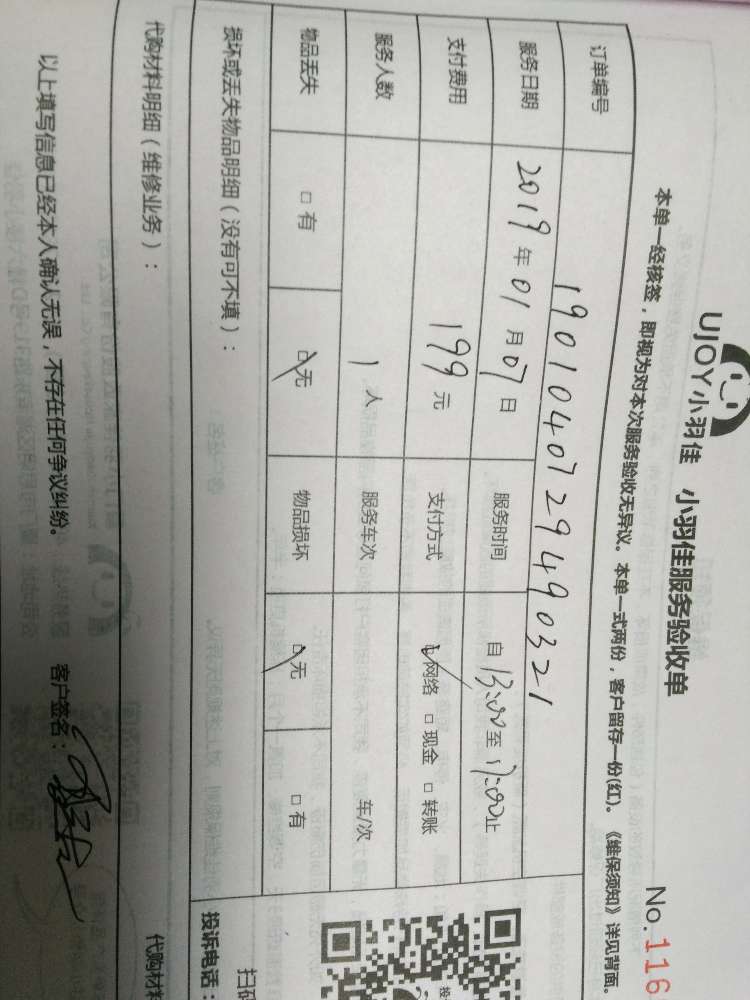 UJOY小羽佳 小羽佳服务验收单
No.116
本单一经核签，即视为对本次服务验收无异议。本单一式两份，客户留存一份(红)。《维保须知》详见背面。
订单编号 190104072949490321
服务日期 2019年01月07日 服务时间 自13:00至17:00止
支付费用 199元 支付方式 网络 □现金 □转账
服务人数 1人 服务车次 车/次
物品丢失 □有 无 物品损坏 无 □有
损坏或丢失物品明细（没有可不填）：
投诉电话：
扫码
代购材料明细（维修业务）：
代购材料
以上填写信息已经本人确认无误，不存在任何争议纠纷。 客户签名：